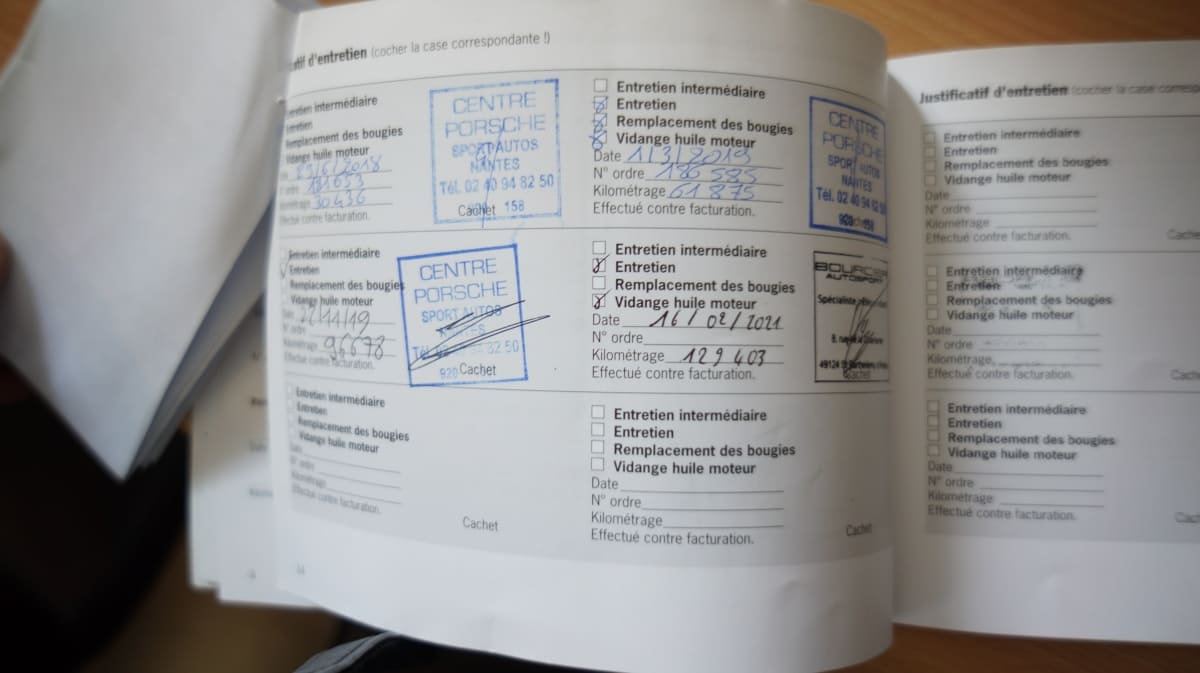 tif d'entretien (cocher la case correspondante !)
Entretien intermédiaire
Entretien
Remplacement des bougies
Vidange huile moteur
2018
30436
Effectué contre facturation.
CENTRE
PORSCHE
SPORT AUTOS
NANTES
Tél. 02 40 94 82 50
Cachet 158
Entretien intermédiaire
Entretien
Remplacement des bougies
Vidange huile moteur
Date 1/3/2019
N° ordre 186585
Kilométrage 61875
Effectué contre facturation.
CENTRE
PORSCHE
SPORT AUTOS
NANTES
Tél. 02 40 94 82 50
Entretien intermédiaire
Entretien
Remplacement des bougies
Vidange huile moteur
Date 22/11/19
N° ordre
Kilométrage 96678
Effectué contre facturation.
CENTRE
PORSCHE
SPORT AUTOS
82 50
920 Cachet
Entretien intermédiaire
Entretien
Remplacement des bougies
Vidange huile moteur
Date 16/02/2021
N° ordre
Kilométrage 129 403
Effectué contre facturation.
AUTOSPORT
Spécialiste
49124
Cachet
Entretien intermédiaire
Entretien
Remplacement des bougies
Vidange huile moteur
Date
N° ordre
Kilométrage
Effectué contre facturation.
Cachet
Entretien intermédiaire
Entretien
Remplacement des bougies
Vidange huile moteur
Date
N° ordre
Kilométrage
Effectué contre facturation.
Cachet
Justificatif d'entretien (cocher la case corresp
Entretien intermédiaire
Entretien
Remplacement des bougies
Vidange huile moteur
Date
N° ordre
Kilométrage
Effectué contre facturation.
Cache
Entretien intermédiaire
Entretien
Remplacement des bougies
Vidange huile moteur
Date
N° ordre
Kilométrage
Effectué contre facturation.
Cach
Entretien intermédiaire
Entretien
Remplacement des bougies
Vidange huile moteur
Date
N° ordre
Kilométrage
Effectué contre facturation.
Cac